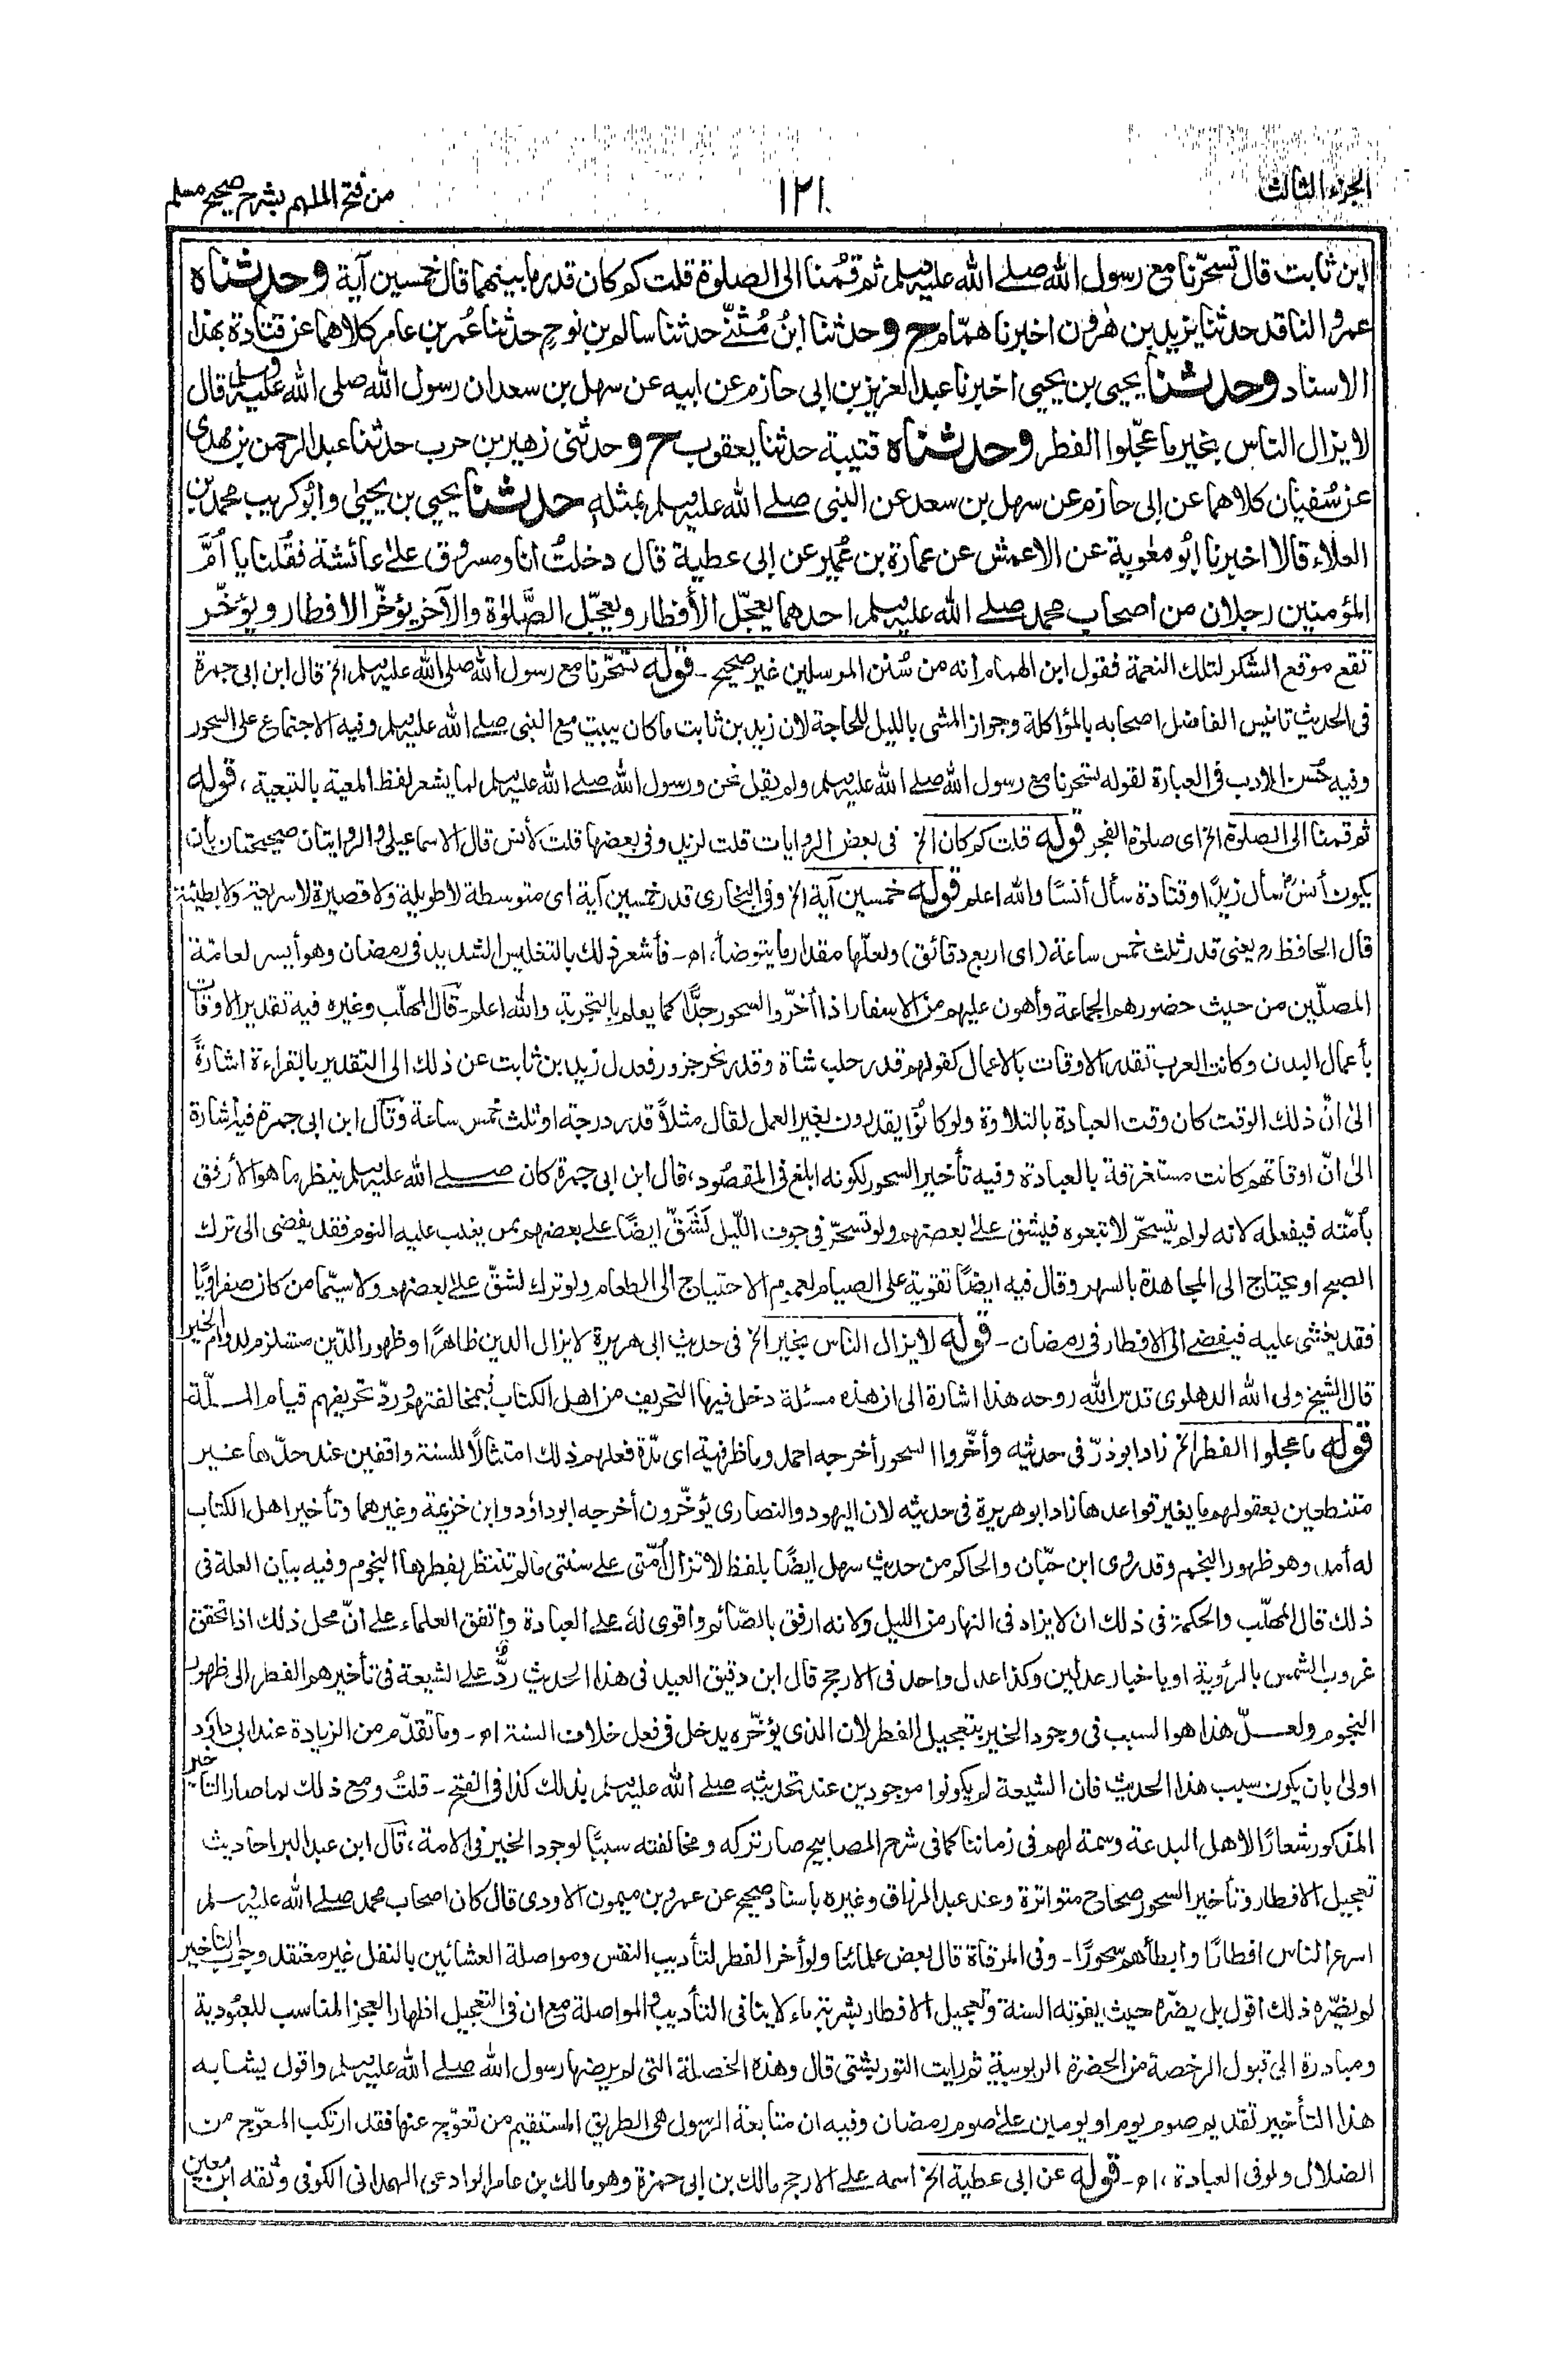 الجزء الثالث
١٢١
من فتح الملهم بشرح صحيح مسلم
ابن ثابت قال تسحّرنا مع رسول الله صلے الله عليه وسلم ثم قمنا الى الصلوة قلت كم كان قدر ما بينهما قال خمسين آية وحدثناه
عمرو الناقد حدثنا يزيد بن هٰرون اخبرنا همّام ح وحدثنا ابنُ مُثنّٰى حدثنا سالم بن نوحٍ حدثنا عُمر بن عامر كلاهما عن قتادة بهذا
الاسناد وحدثنا يحيى بن يحيى اخبرنا عبد العزيز بن ابى حازم عن ابيه عن سهل بن سعد ان رسول الله صلى الله عليه وسلم قال
لا يزال الناس بخير ما عجّلوا الفطر وحدثناه قتيبة حدثنا يعقوب ح وحدثنى زهير بن حرب حدثنا عبد الرحمن بن مهدى
عن سُفيان كلاهما عن ابى حازم عن سهل بن سعد عن النبى صلے الله عليه وسلم بمثلهٖ حدثنا يحيى بن يحيىٰ وابو كريب محمد بن
العلاء قالا اخبرنا ابُو معٰوية عن الاعمش عن عمارة بن عُمير عن ابى عطية قال دخلتُ انا ومسروق علےٰ عائشة فقُلنا يا اُمَّ
المؤمنين رجلان من اصحاب محمد صلے الله عليه وسلم احدهما يعجّل الأفطار ويعجّل الصَّلوٰة والآخر يؤخّر الافطار ويؤخّر
تقع موقع الشكر لتلك النعمة فقول ابن الهمام انه من سُنن المرسلين غير صحيح - قوله تسحّرنا مع رسول الله صلى الله عليه وسلم الخ قال ابن ابى جمرة
فى الحديث تانيس الفاضل اصحابه بالمؤاكلة وجواز المشى بالليل للحاجة لان زيد بن ثابت ما كان يبيت مع النبى صلے الله عليه وسلم وفيه الاجتماع على السحور
وفيه حُسن الادب فى العبارة لقوله تسحرنا مع رسول الله صلے الله عليه وسلم ولم يقل نحن ورسول الله صلے الله عليه وسلم لما يشعر لفظ المعية بالتبعية ، قوله
ثم قمنا الى الصلوة الخ اى صلوة الفجر قوله قلت كم كان الخ فى بعض الروايات قلت لزيد وفى بعضها قلت لأنس قال الاسماعيلى والروايتان صحيحتان بأن
يكون أنسٌ سأل زيدًا وقتادة سأل أنسًا والله اعلم قوله خمسين آية الخ وفى البخارى قدر خمسين آية اى متوسطة لا طويلة ولا قصيرة لا سريعة ولا بطيئة
قال الحافظ رم يعنى قدر ثلث خمس ساعة (اى اربع دقائق) ولعلّها مقدار ما يتوضأ، ام - فأشعر ذلك بالتغليس الشديد فى رمضان وهو أيسر لعامّة
المصلّين من حيث حضورهم الجماعة وأهون عليهم من الاسفار اذا أخرّوا السحور جدًّا كما يعلم بالتجربة والله اعلم - قال المهلّب وغيره فيه تقدير الاوقات
بأعمال البدن وكانت العرب تقدر الاوقات بالاعمال كقولهم قدر حلب شاة وقدر نحر جزور فعدل زيد بن ثابت عن ذلك الى التقدير بالقراءة اشارةً
الىٰ انّ ذلك الوقت كان وقت العبادة بالتلاوة ولو كانوُا يقدرون بغير العمل لقال مثلاً قدر درجة او ثلث خمس ساعة وقال ابن ابى جمرة فيه اشارة
الىٰ انّ اوقاتهم كانت مستغرقة بالعبادة وفيه تأخير السحور لكونه ابلغ فى المقصُود، قال ابن ابى جمرة كان صلے الله عليه وسلم ينظر ما هو الأرفق
بأمّته فيفعله لانه لو لم يتسحّر لاتبعوه فيشق علےٰ بعضهم ولو تسحّر فى جوف اللّيل لَشَقّ ايضًا علے بعضهم ممن يغلب عليه النوم فقد يفضى الى ترك
الصبح او يحتاج الى المجاهدة بالسهر وقال فيه ايضًا تقوية على الصيام لعموم الاحتياج الى الطعام ولو ترك لشقّ علےٰ بعضهم ولا سيّما من كان صفراويًا
فقد يغشى عليه فيفضے الى الافطار فى رمضان - قوله لا يزال الناس بخير الخ فى حديث ابى هريرة لا يزال الدين ظاهرًا وظهور الدّين مستلزم لدوام الخير
قال الشيخ ولى الله الدهلوى قدس الله روحه هذا اشارة الى ان هذه مسئلة دخل فيها التحريف من اهل الكتاب فبمخالفتهم ورد تحريفهم قيام المسلّة
قوله ما عجلوا الفطر الخ زاد ابو ذرّ فى حديثه وأخّروا السحور أخرجه احمد وما ظرفية اى مدّة فعلهم ذلك امتثالاً للسنة واقفين عند حدّها غير
متنطعين بعقولهم ما يغير قواعدها زاد ابو هريرة فى حديثه لان اليهود والنصارى يؤخّرون أخرجه ابو داؤد وابن خزيمة وغيرهما وتأخير اهل الكتاب
له أمد، وهو ظهور النجم وقد روى ابن حبّان والحاكم من حديث سهل ايضًا بلفظ لا تزال أمّتى علے سنتى مالم تنتظر بفطرها النجوم وفيه بيان العلة فى
ذلك قال المهلّب والحكمة فى ذلك ان لا يزاد فى النهار من الليل ولانه ارفق بالصّائم واقوى لهٗ علے العبادة واتفق العلماء علے انّ محل ذلك اذا تحقق
غروب الشمس بالرؤية او باخبار عدلين وكذا عدل واحد فى الارجح قال ابن دقيق العيد فى هذا الحديث ردٌّ علے الشيعة فى تأخيرهم الفطر الى ظهور
النجوم ولعلّ هذا هو السبب فى وجود الخير بتعجيل الفطر لان الذى يؤخّره يدخل فى فعل خلاف السنة ام - وما تقدّم من الزيادة عند ابى داؤد
اولىٰ بان يكون سبب هذا الحديث فان الشيعة لم يكونوا موجودين عند تحديثه صلے الله عليه وسلم بذلك كذا فى الفتح - قلتُ ومع ذلك لما صار التأخير
المذكور شعارًا لاهل البدعة وسمة لهم فى زماننا كما فى شرح المصابيح صار تركه ومخالفته سببًا لوجود الخير فى الامة، قال ابن عبد البر احاديث
تعجيل الافطار وتأخير السحور صحاح متواترة وعند عبد الرزاق وغيره باسناد صحيح عن عمرو بن ميمون الاودى قال كان اصحاب محمد صلے الله عليه وسلم
اسرع الناس افطارًا وابطأهم سحورًا - وفى المرقاة قال بعض علمائنا ولو أخر الفطر لتأديب النفس ومواصلة العشائين بالنفل غير معتقد وجوب التاخير
لم يضرّه ذلك اقول بل يضرّه حيث يفوته السنة وتعجيل الافطار بشربة ماء لا ينافى التأديب والمواصلة مع ان فى التعجيل اظهار العجز المناسب للعبُودية
ومبادرة الى قبول الرخصة من الحضرة الربوبية ثم رايت التوربشتى قال وهذه الخصلة التى لم يرضها رسول الله صلے الله عليه وسلم واقول يشابه
هذا التأخير تقديم صوم يوم او يومين علےٰ صوم رمضان وفيه ان متابعة الرسول هى الطريق المستقيم من تعوّج عنها فقد ارتكب المعوّج من
الضلال ولو فى العبادة ، ام - قوله عن ابى عطية الخ اسمه علے الارجح مالك بن ابى حمزة وهو مالك بن عامر الوادعى الهمدانى الكوفى وثقه ابن معين